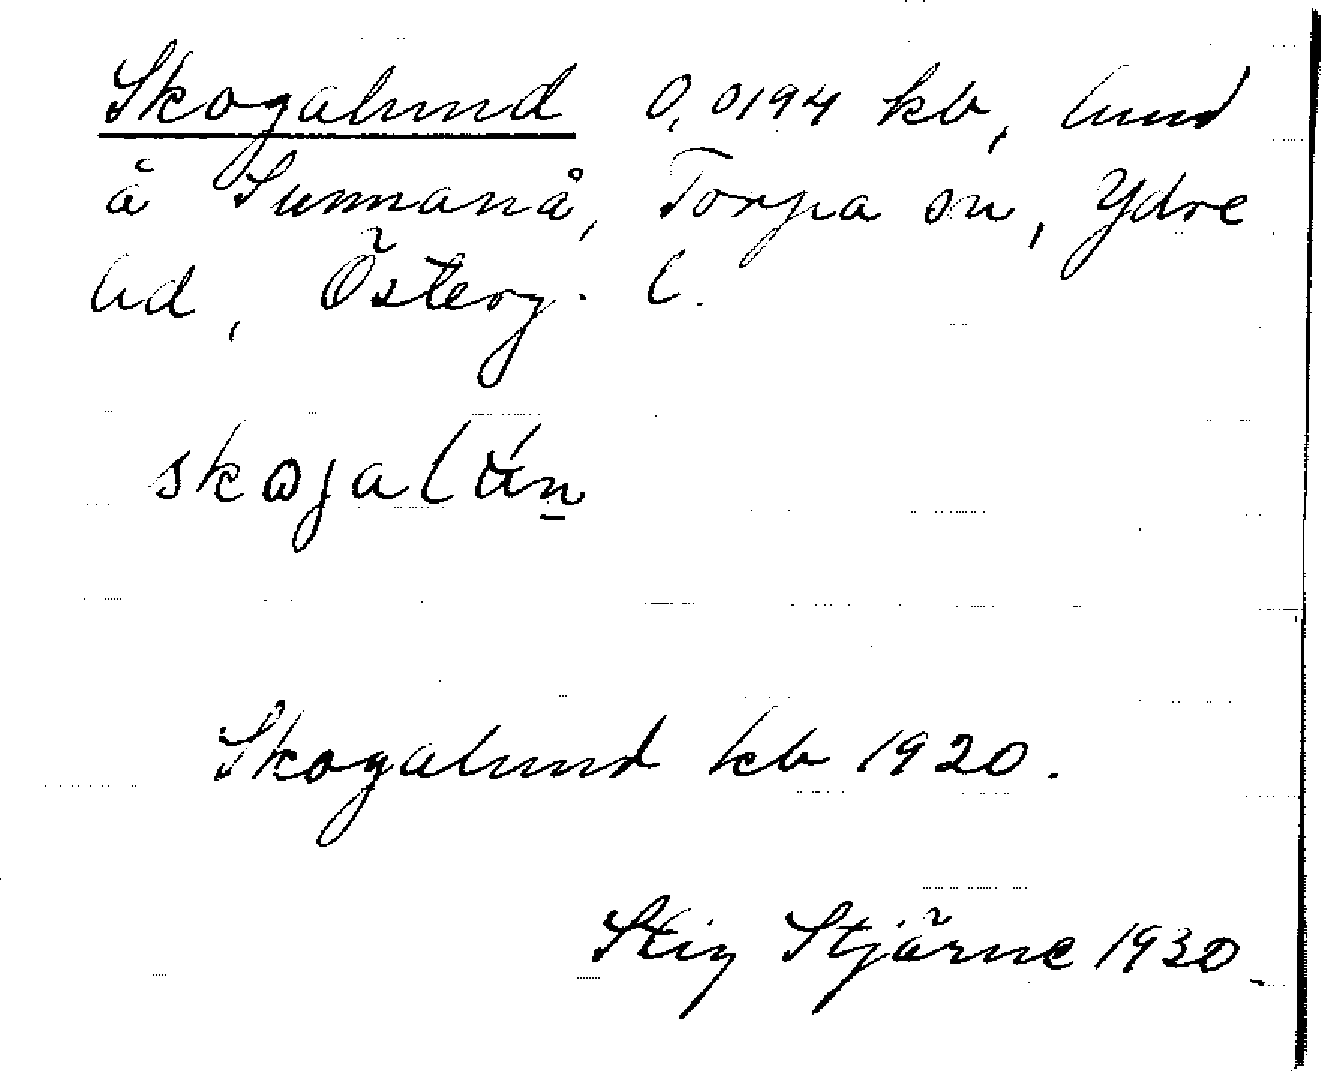 Skogalund 0,0194 kb, lund
å Sunnanå, Torpa sn, Ydre
hd, Österg. l.
skoga lún
Skogalund kb 1920.
Stig Stjärne 1930.